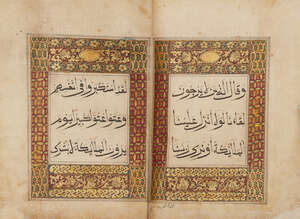 وقال الذين لا يرجون
لقاءنا لولا انزل علينا
الملايكة او نرى ربنا
لقد استكبروا في انفسهم
وعتوا عتوا كبيرا يوم
يرون الملايكة لا بشرى